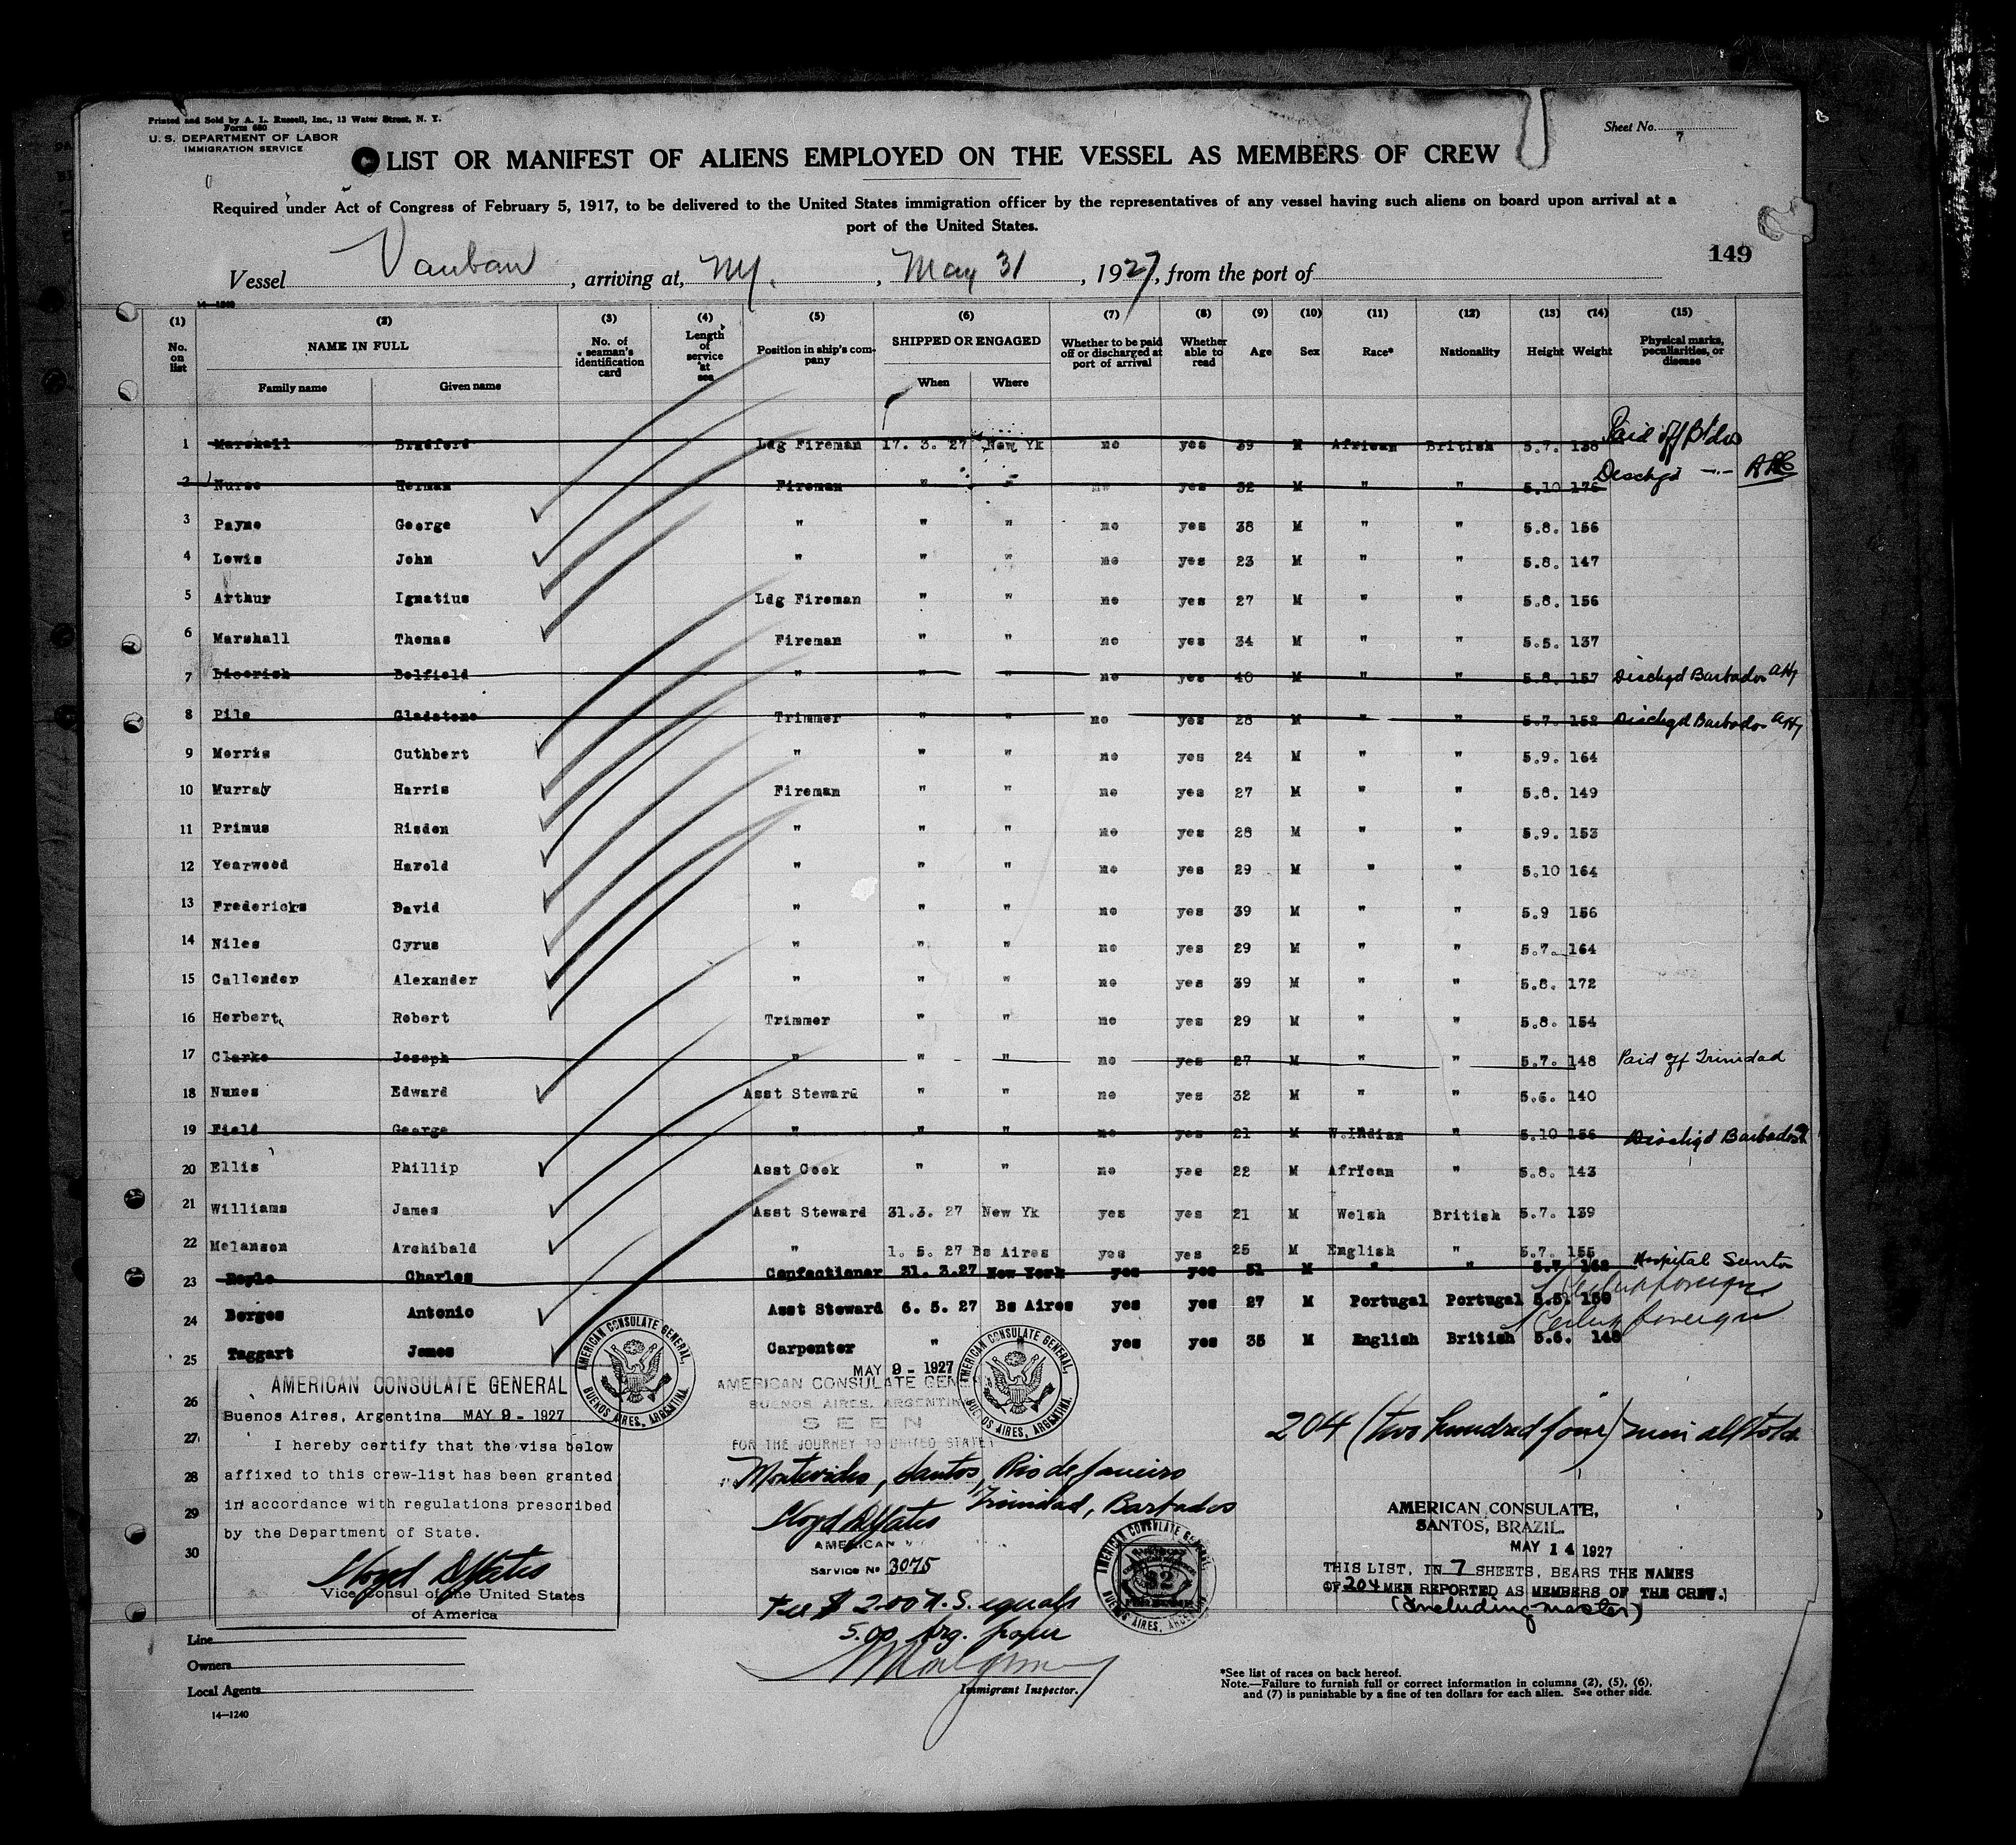 Printed and Sold by A. L. Russell, Inc., 13 Water Street, N. Y.
Form 680
U. S. DEPARTMENT OF LABOR
IMMIGRATION SERVICE
Sheet No. 7
LIST OR MANIFEST OF ALIENS EMPLOYED ON THE VESSEL AS MEMBERS OF CREW
Required under Act of Congress of February 5, 1917, to be delivered to the United States immigration officer by the representatives of any vessel having such aliens on board upon arrival at a
port of the United States.
149
Vessel Vauban, arriving at, NY., May 31, 1927, from the port of
14—1240
(1) No. on list (2) NAME IN FULL Family name Given name (3) No. of seaman's identification card (4) Length of service at sea (5) Position in ship's company (6) SHIPPED OR ENGAGED When Where (7) Whether to be paid off or discharged at port of arrival (8) Whether able to read (9) Age (10) Sex (11) Race* (12) Nationality (13) Height (14) Weight (15) Physical marks, peculiarities, or disease
1 Marshall Bradford Ldg Fireman 17. 3. 27 New Yk no yes 39 M African British 5.7. 138 Paid off B'dos
2 Nurse Herman Fireman " " no yes 32 M " " 5.10 176 Deschgd
3 Payne George " " " no yes 38 M " " 5.8. 156
4 Lewis John " " " no yes 23 M " " 5.8. 147
5 Arthur Ignatius Ldg Fireman " " no yes 27 M " " 5.8. 156
6 Marshall Thomas Fireman " " no yes 34 M " " 5.5. 137
7 Licorish Belfield " " " no yes 40 M " " 5.8. 157 Dischgd Barbados
8 Pile Gladstone Trimmer " " no yes 28 M " " 5.7. 152 Dischgd Barbados
9 Morris Cuthbert " " " no yes 24 M " " 5.9. 164
10 Murray Harris Fireman " " no yes 27 M " " 5.8. 149
11 Primus Risden " " " no yes 28 M " " 5.9. 153
12 Yearwood Harold " " " no yes 29 M " " 5.10 164
13 Fredericks David " " " no yes 39 M " " 5.9 156
14 Niles Cyrus " " " no yes 29 M " " 5.7. 164
15 Callender Alexander " " " no yes 39 M " " 5.8. 172
16 Herbert Robert Trimmer " " no yes 29 M " " 5.8. 154
17 Clarke Joseph " " " no yes 27 M " " 5.7. 148 Paid off Trinidad
18 Nunes Edward Asst Steward " " no yes 32 M " " 5.6. 140
19 Field George " " " no yes 21 M W.Indian " 5.10 156 Dischgd Barbados
20 Ellis Phillip Asst Cook " " no yes 22 M African " 5.8. 143
21 Williams James Asst Steward 31.3. 27 New Yk yes yes 21 M Welsh British 5.7. 139
22 Melanson Archibald " 1. 5. 27 Bs Aires yes yes 25 M English " 5.7. 155
23 Charles Confectioner 31. 3.27 New York yes yes 51 M " " 5.7. 162 Hospital Santos
24 Borges Antonio Asst Steward 6. 5. 27 Bs Aires yes yes 27 M Portugal Portugal 5.5. 150 foreign
25 Taggart James Carpenter " yes yes 35 M English British 5.6. 148 foreign
26
27
28
29
30
AMERICAN CONSULATE GENERAL
Buenos Aires, Argentina MAY 9 - 1927
I hereby certify that the visa below
affixed to this crew-list has been granted
in accordance with regulations prescribed
by the Department of State.
Lloyd D Yates
Vice Consul of the United States
of America
AMERICAN CONSULATE GENERAL, BUENOS AIRES, ARGENTINA.
MAY 9 - 1927
AMERICAN CONSULATE GEN
BUENOS AIRES, ARGENTIN
SEEN
FOR THE JOURNEY TO UNITED STATES
Montevideo, Santos, Rio de Janeiro
Trinidad, Barbados
Lloyd D Yates
AMERICAN
Service No 3075
Fee $ 2.00 U. S. equals
5.00 Arg. paper
Immigrant Inspector.
AMERICAN CONSULATE GENERAL, BUENOS AIRES, ARGENTINA.
AMERICAN CONSULATE GENERAL, BUENOS AIRES, ARGENTINA.
$2
204 (two hundred four) men all told
AMERICAN CONSULATE,
SANTOS, BRAZIL.
MAY 14 1927
THIS LIST, IN 7 SHEETS, BEARS THE NAMES
OF 204 MEN REPORTED AS MEMBERS OF THE CREW.
(including master)
Line
Owners
Local Agents
14—1240
*See list of races on back hereof.
Note.—Failure to furnish full or correct information in columns (2), (5), (6),
and (7) is punishable by a fine of ten dollars for each alien. See other side.